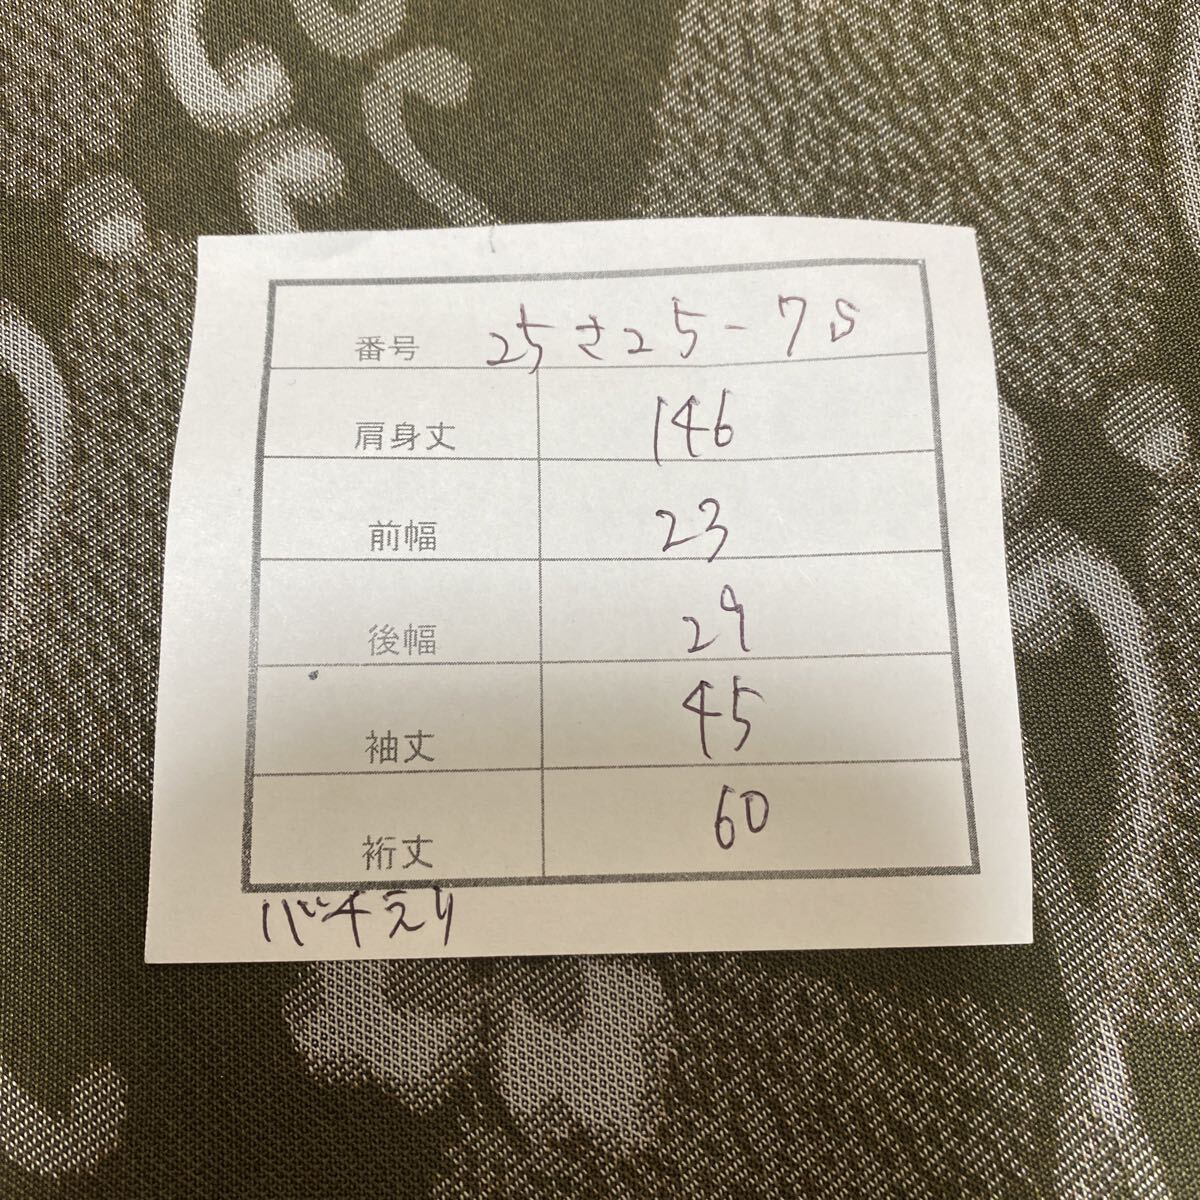 番号 25さ25-7S
肩身丈 146
前幅 23
後幅 29
袖丈 45
裄丈 60
バチえり